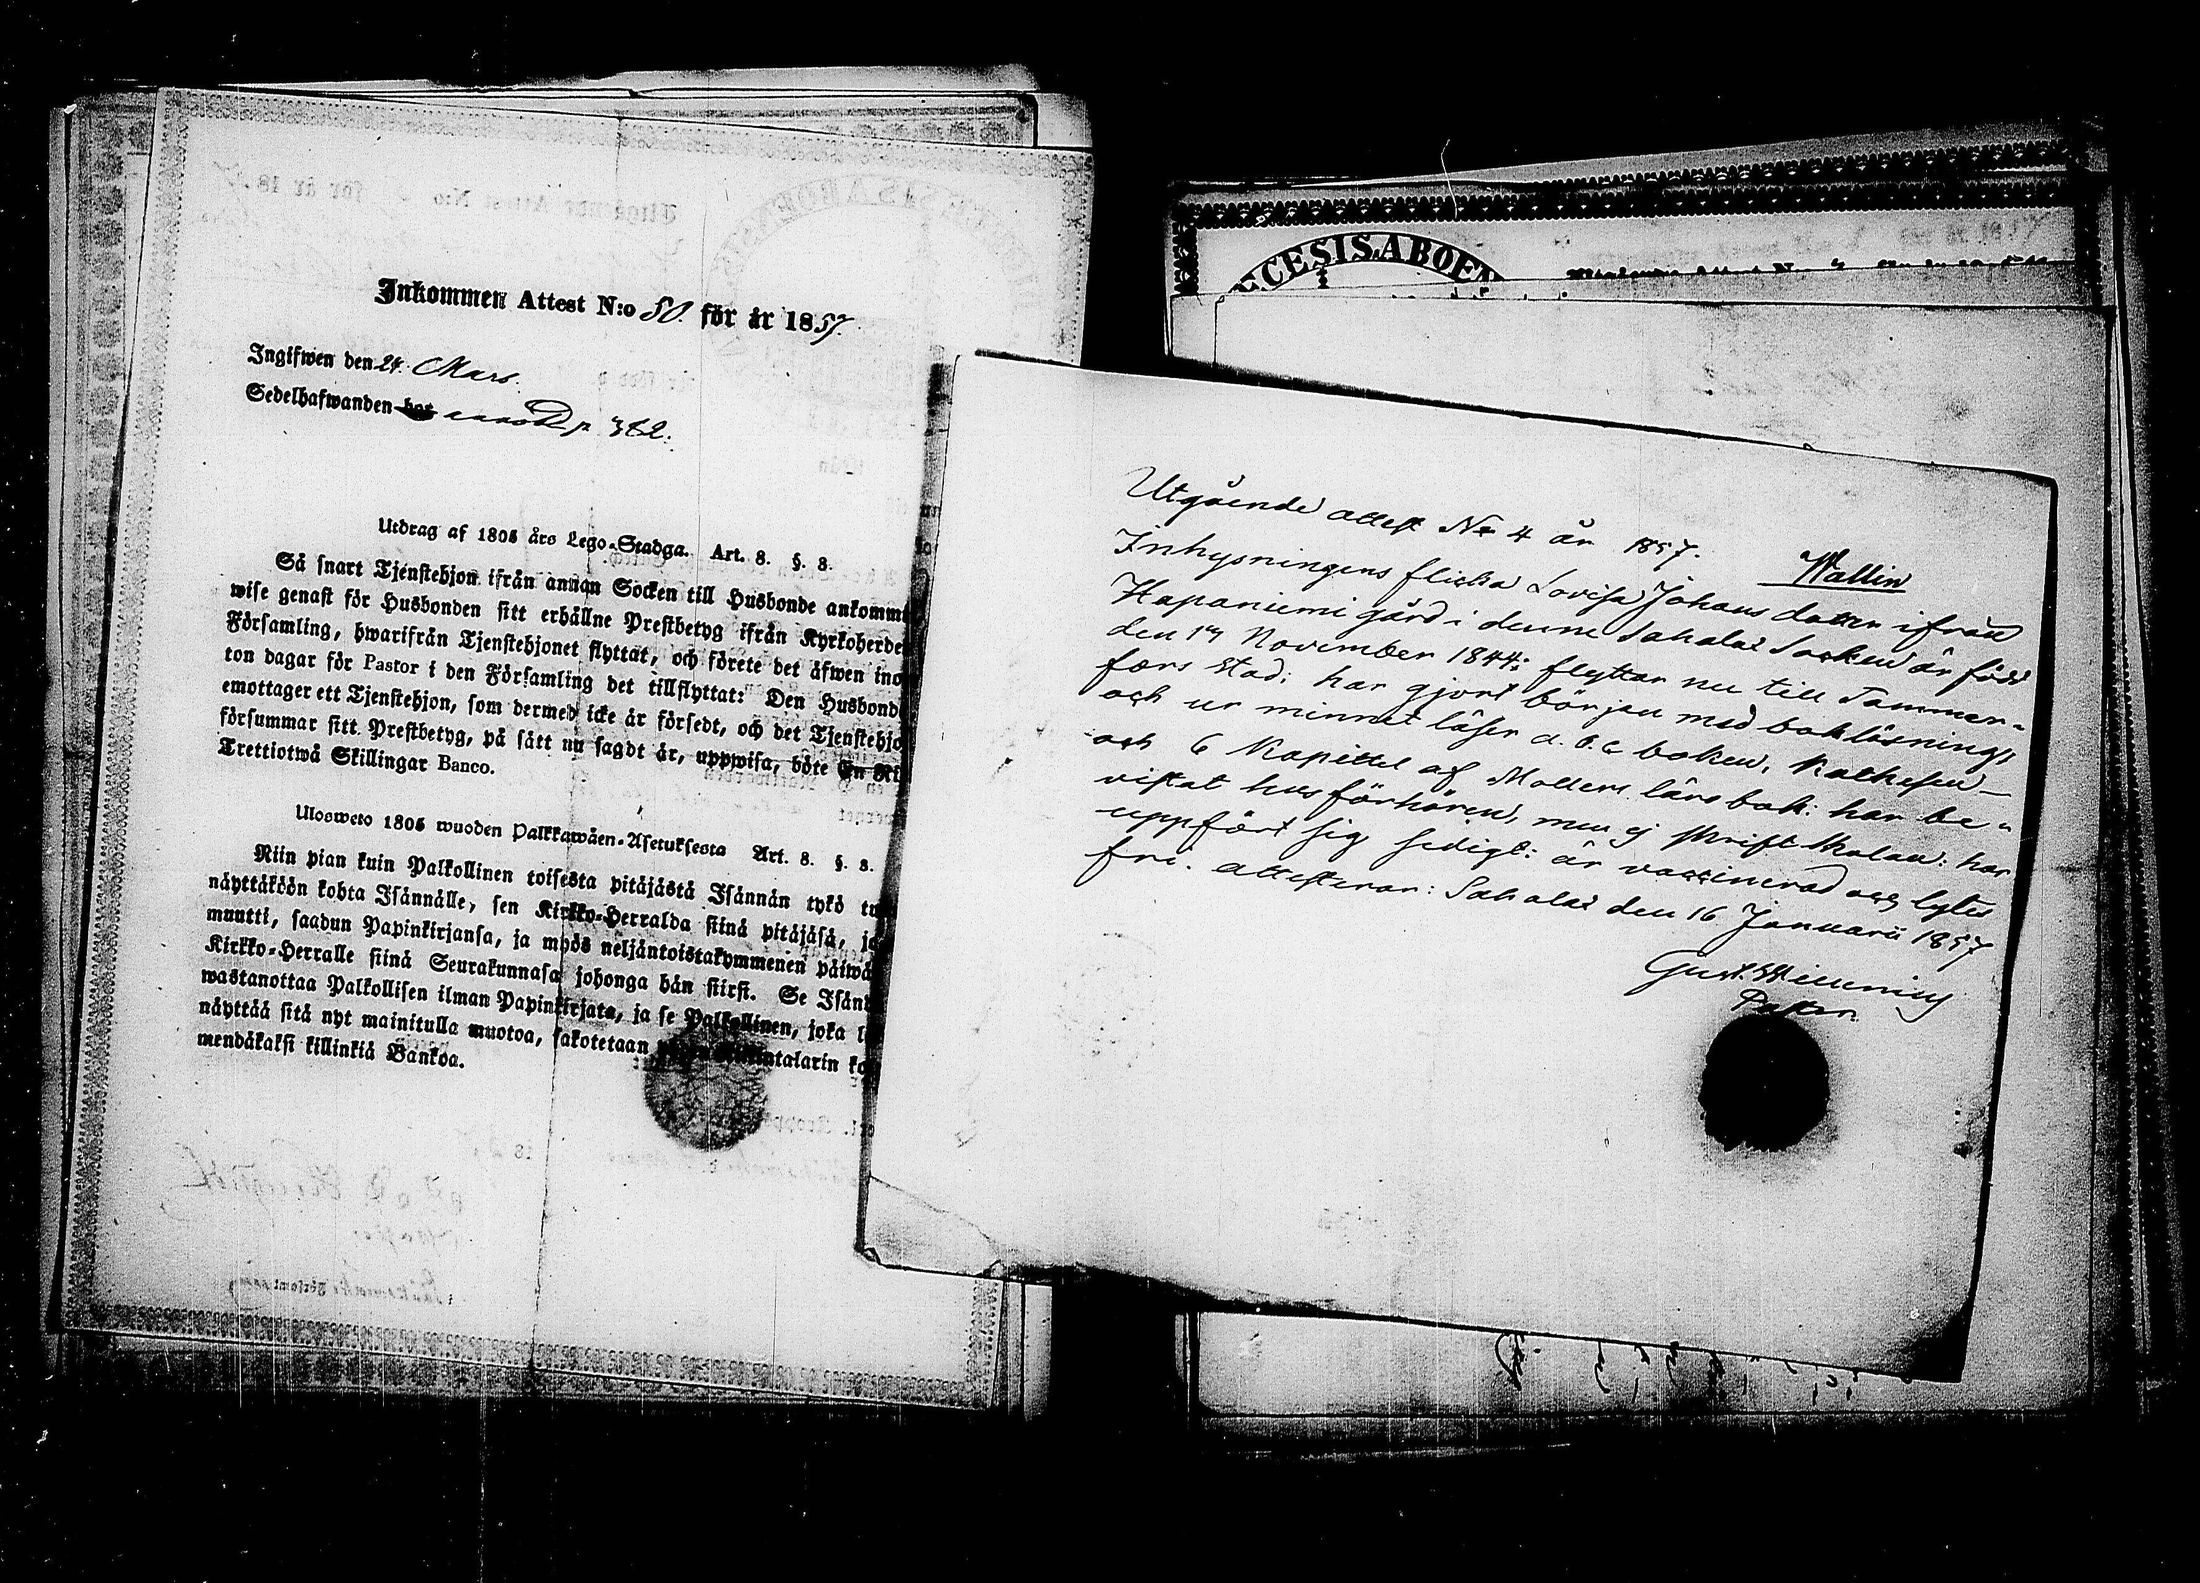 Inkommen Attest N:o 50. för år 1857.
Ingifwen den 24. Mars.
Sedelhafwanden p 382.
Utdrag af 1805 års Lego-Stadga. Art. 8. §. 8.
Så snart Tjenstehjon ifrån annan Socken till Husbonde ankomm
wise genast för Husbonden sitt erhållne Prestbetyg ifrån Kyrkoherde
Församling, hwarifrån Tjenstehjonet flyttat, och förete det äfwen ino
ton dagar för Pastor i den Församling det tillflyttat: Den Husbond
emottager ett Tjenstehjon, som dermed icke är försedt, och det Tjenstehjo
försummar sitt Prestbetyg, på sätt nu sagdt är, uppwisa, böte En Ri
Trettiotwå Skillingar Banco.
Ulosweto 1805 wuoden Palkkawäen-Asetuksesta Art. 8. §. 8.
Niin pian kuin Palkollinen toisesta pitäjästä Isännän tykö tu
näyttäköön kohta Isännälle, sen Kirkko-Herralda siinä pitäjäsä, jo
muutti, saadun Papinkirjansa, ja myös neljäntoistakymmenen päiwä
Kirkko-Herralle siinä Seurakunnasa johonga hän siirsi. Se Isänt
wastanottaa Palkollisen ilman Papinkirjata, ja se Palkollinen, joka l
näyttää sitä nyt mainitulla muotoa, sakotetaan kintalarin ko
mendäkaksi killinkiä Bankoa.
ECESIS.ABOEN
Utgående attest No 4 år 1857.
Wallin
Inhysningens flicka Lovisa Johans dotter ifrån
Hapaniemi gård i denne Sahalax Socken är född
den 17 November 1844; flyttar nu till Tammer-
fors Stad; har gjort början med bokläsning,
och ur minnet läser a. b. c boken, Kathesen
och 6 Kapittel af Mollers lärobok: har be-
vistat husförhören, men ej skriftskolan: har
uppfört sig sedigt: är vaccinerad och lytes
fri. attesterar: Sahalax den 16 Januarii 1857
Gust.
Pastor.